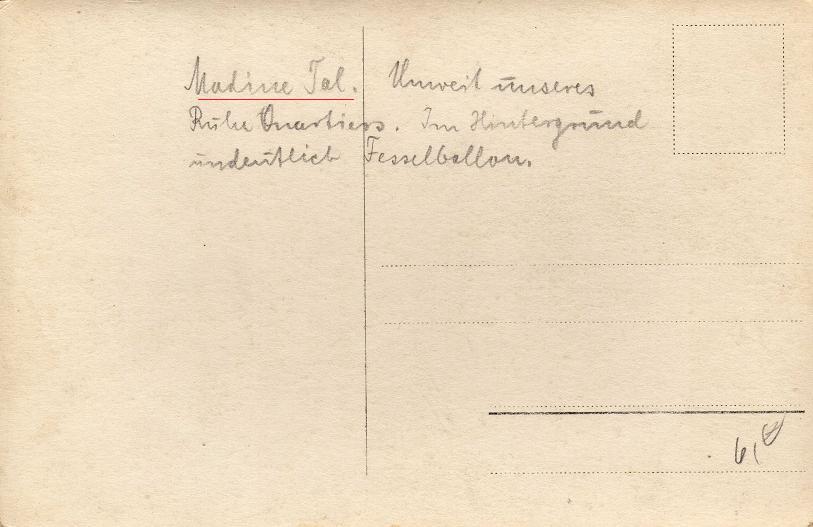 Madine Tal. Unweit unseres
Ruhe Quartiers. Im Hintergrund
undeutlich Fesselballon.